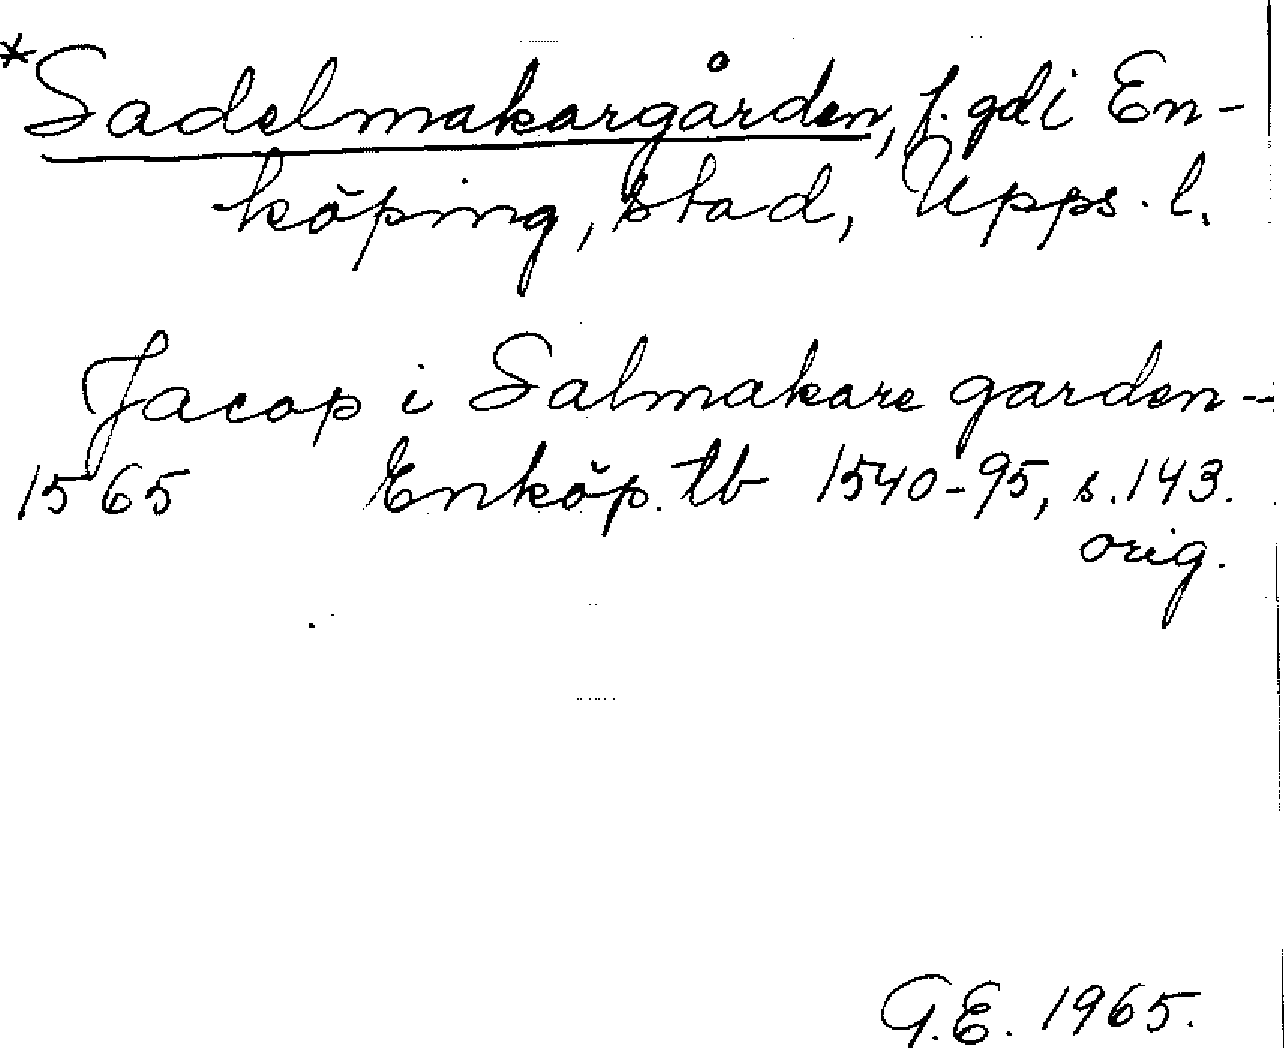 *Sadelmakargården, f. gd i En-
köping, stad, Upps. l.
Jacop i Salmakare garden --
1565 Enköp. tb 1540-95, s. 143.
orig.
G.E. 1965.